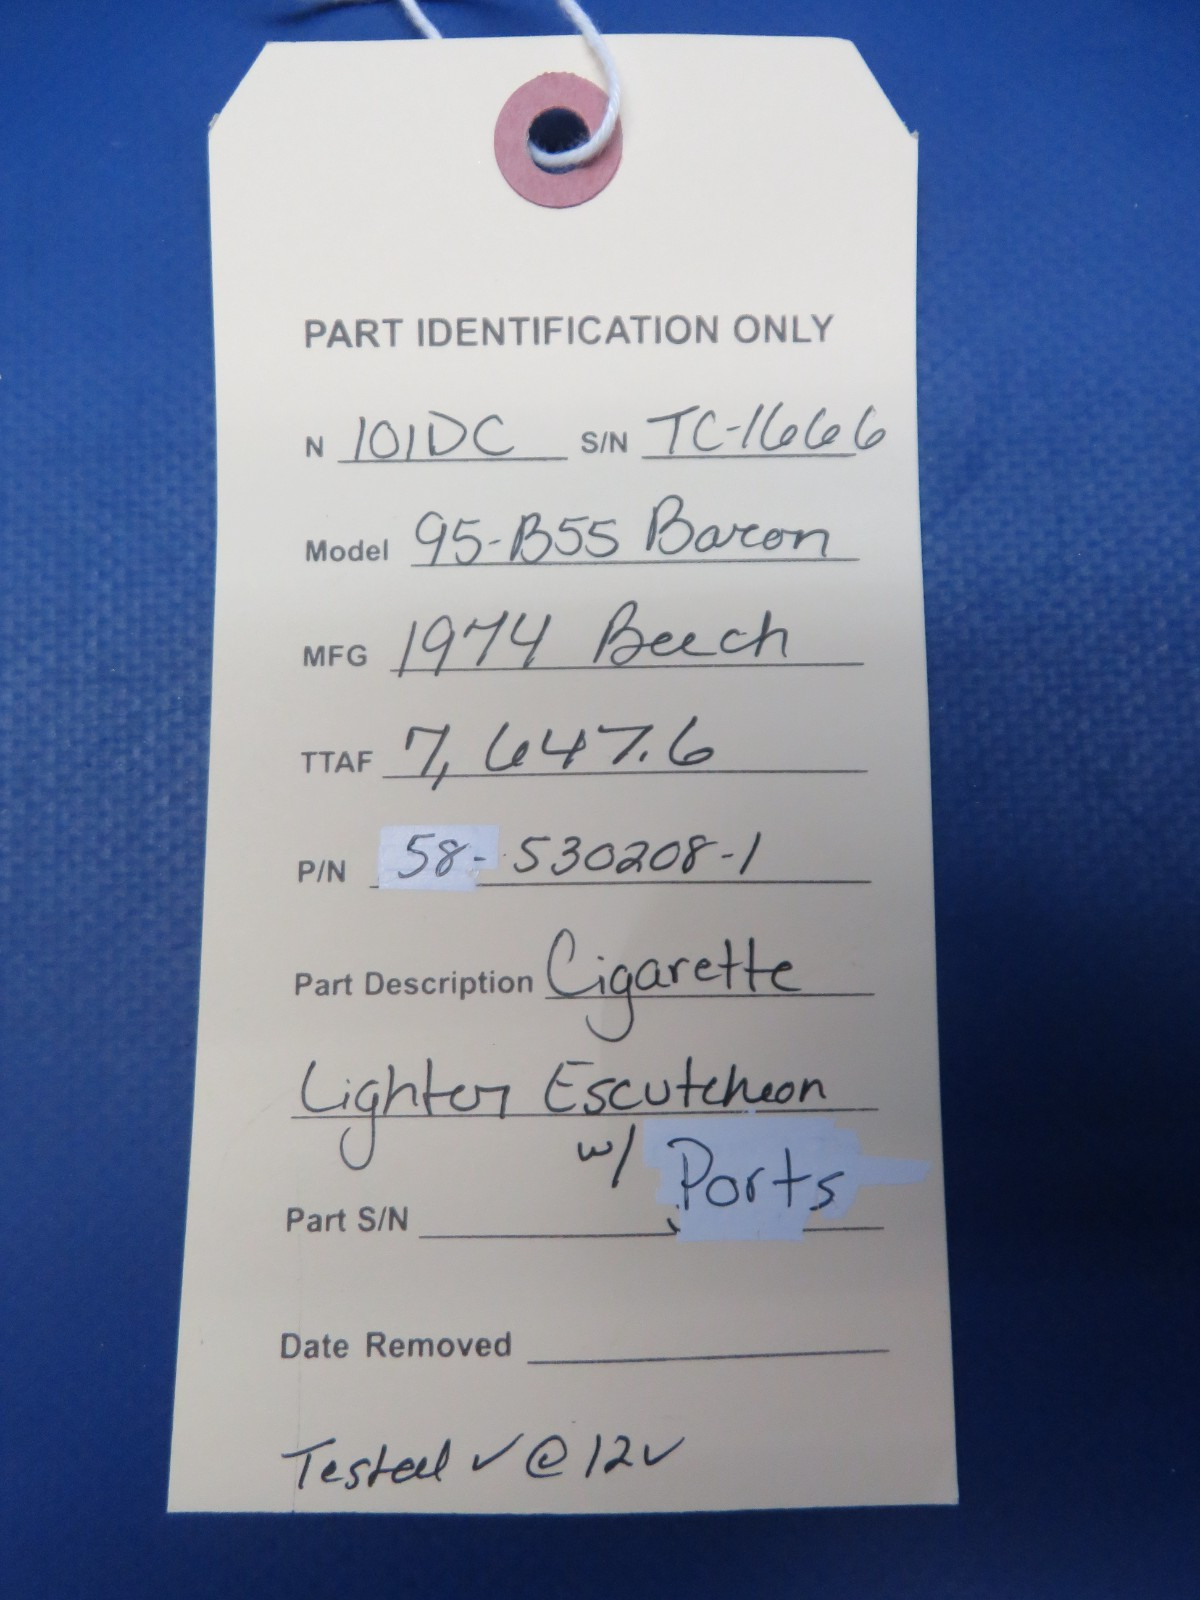 PART IDENTIFICATION ONLY
N 101DC S/N TC-1666
Model 95-B55 Baron
MFG 1974 Beech
TTAF 7,647.6
P/N 58-530208-1
Part Description Cigarette
Lighter Escutcheon
w/ Ports
Part S/N
Date Removed
Tested ✓ @ 12v